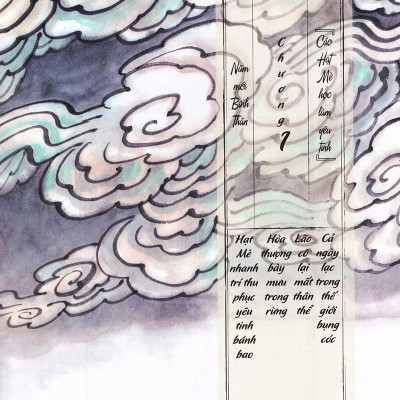 『Cáo Hạt Mè học làm yêu tinh』
Chương 1
Năm mới Bính Thân
Cả ngày lạc trong thế giới bụng cóc
Lão cổ lại mất thân thể
Hòa thượng bày mưu trong rừng
Hạt Mè nhanh trí thu phục yêu tinh bánh bao